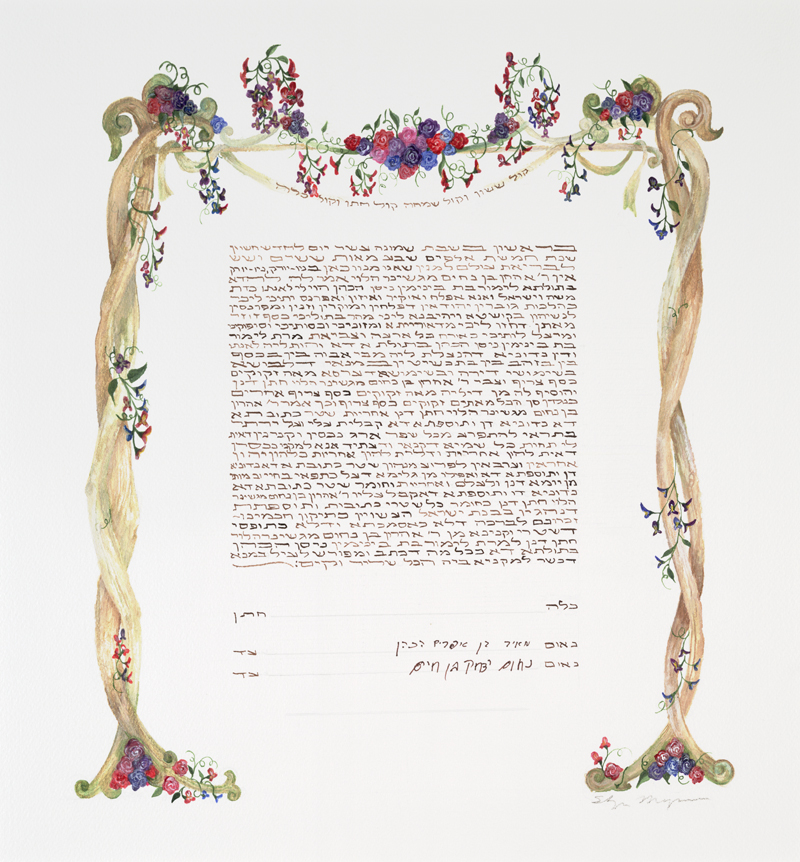 קול ששון וקול שמחה קול חתן וקול כלה
בראשון בשבת שמונה עשר יום לחדש חשון
שנת חמשת אלפים שבע מאות ששים ושש
לבריאת עולם למנין שאנו מנין כאן בניו-יורק, ניו-יורק
איך ר' אהרן בן נחום מגשינר הלוי אמר לה להדא
בתולתא לימור בת בינימין ניסן הכהן הוי לי לאנתו כדת
משה וישראל ואנא אפלח ואוקיר ואיזון ואפרנס יתיכי ליכי
כהלכות גוברין יהודאין דפלחין ומוקרין וזנין ומפרנסין
לנשיהון בקושטא ויהיבנא ליכי מהר בתוליכי כסף זוזי
מאתן דחזו ליכי מדאורייתא ומזוניכי וכסותיכי וסיפוקיכי
ומיעל לותיכי כאורח כל ארעא וצביאת מרת לימור
בת בינימין ניסן הכהן בתולתא דא והות ליה לאנתו
ודן נדוניא דהנעלת ליה מבי אבוה בין בכסף
בין בזהב בין בתכשיטין במאני דלבושא
בשימושי דירה ובשימושא דערסא מאה זקוקים
כסף צרוף וצבי ר' אהרן בן נחום מגשינר הלוי חתן דנן
והוסיף לה מן דיליה מאה זקוקים כסף צרוף אחרים
כנגדן סך הכל מאתים זקוקים כסף צרוף וכך אמר ר' אהרון
בן נחום מגשינר הלוי חתן דנן אחריות שטר כתובתא
דא נדוניא דן ותוספתא דא קבלית עלי ועל ירתי
בתראי להתפרע מכל שפר ארג נכסין וקנינין דאית
לי תחות כל שמיא דקנאי ודעתיד אנא למקני נכסין
דאית להון אחריות ודלית להון אחריות כלהון יהון
אחראין וערבאין לפרוע מנהון שטר כתובתא דא נדוניא
דן ותוספתא דא ואפילו מן גלימא דעל כתפאי בחיי ובמותי
מן יומא דנן ולעלם ואחריות וחומר שטר כתובתא דא
נדוניא דן ותוספתא דא קבל עליו ר' אהרן בן נחום מגשינר
הלוי חתן דנן כחומר כל שטרי כתובות ותוספתות
דנהגין בבנת ישראל העשויין כתיקון חכמינו
זכרונם לברכה דלא כאסמכתא ודלא כטופסי
דשטרי וקנינא מן ר' אהרן בן נחום מגשינר הלוי
חתן דנן למרת לימור בת בינימין ניסן הכהן
בתולתא דא ככל מה דכתב ומפורש לעיל במנא
דכשר למקניא ביה הכל שריר וקים:
כלה חתן
נאום מאיר בן אפרים הכהן עד
נאום נחום יצחק בן חיים עד